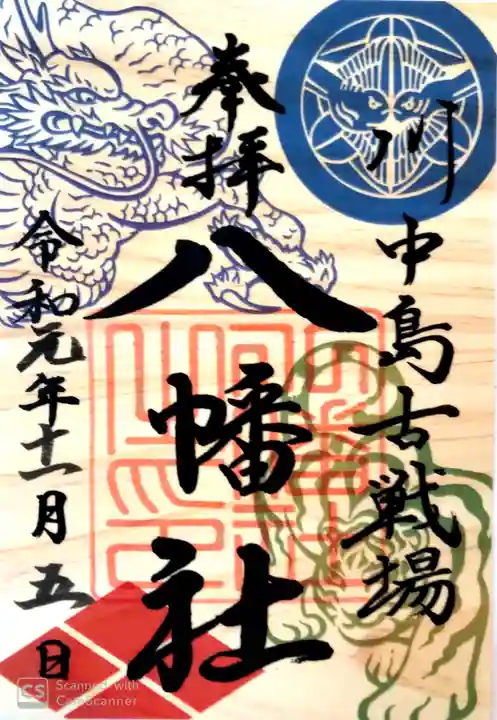 川中島古戦場
奉拝
八幡社
令和元年十一月五日
CS Scanned with
CamScanner